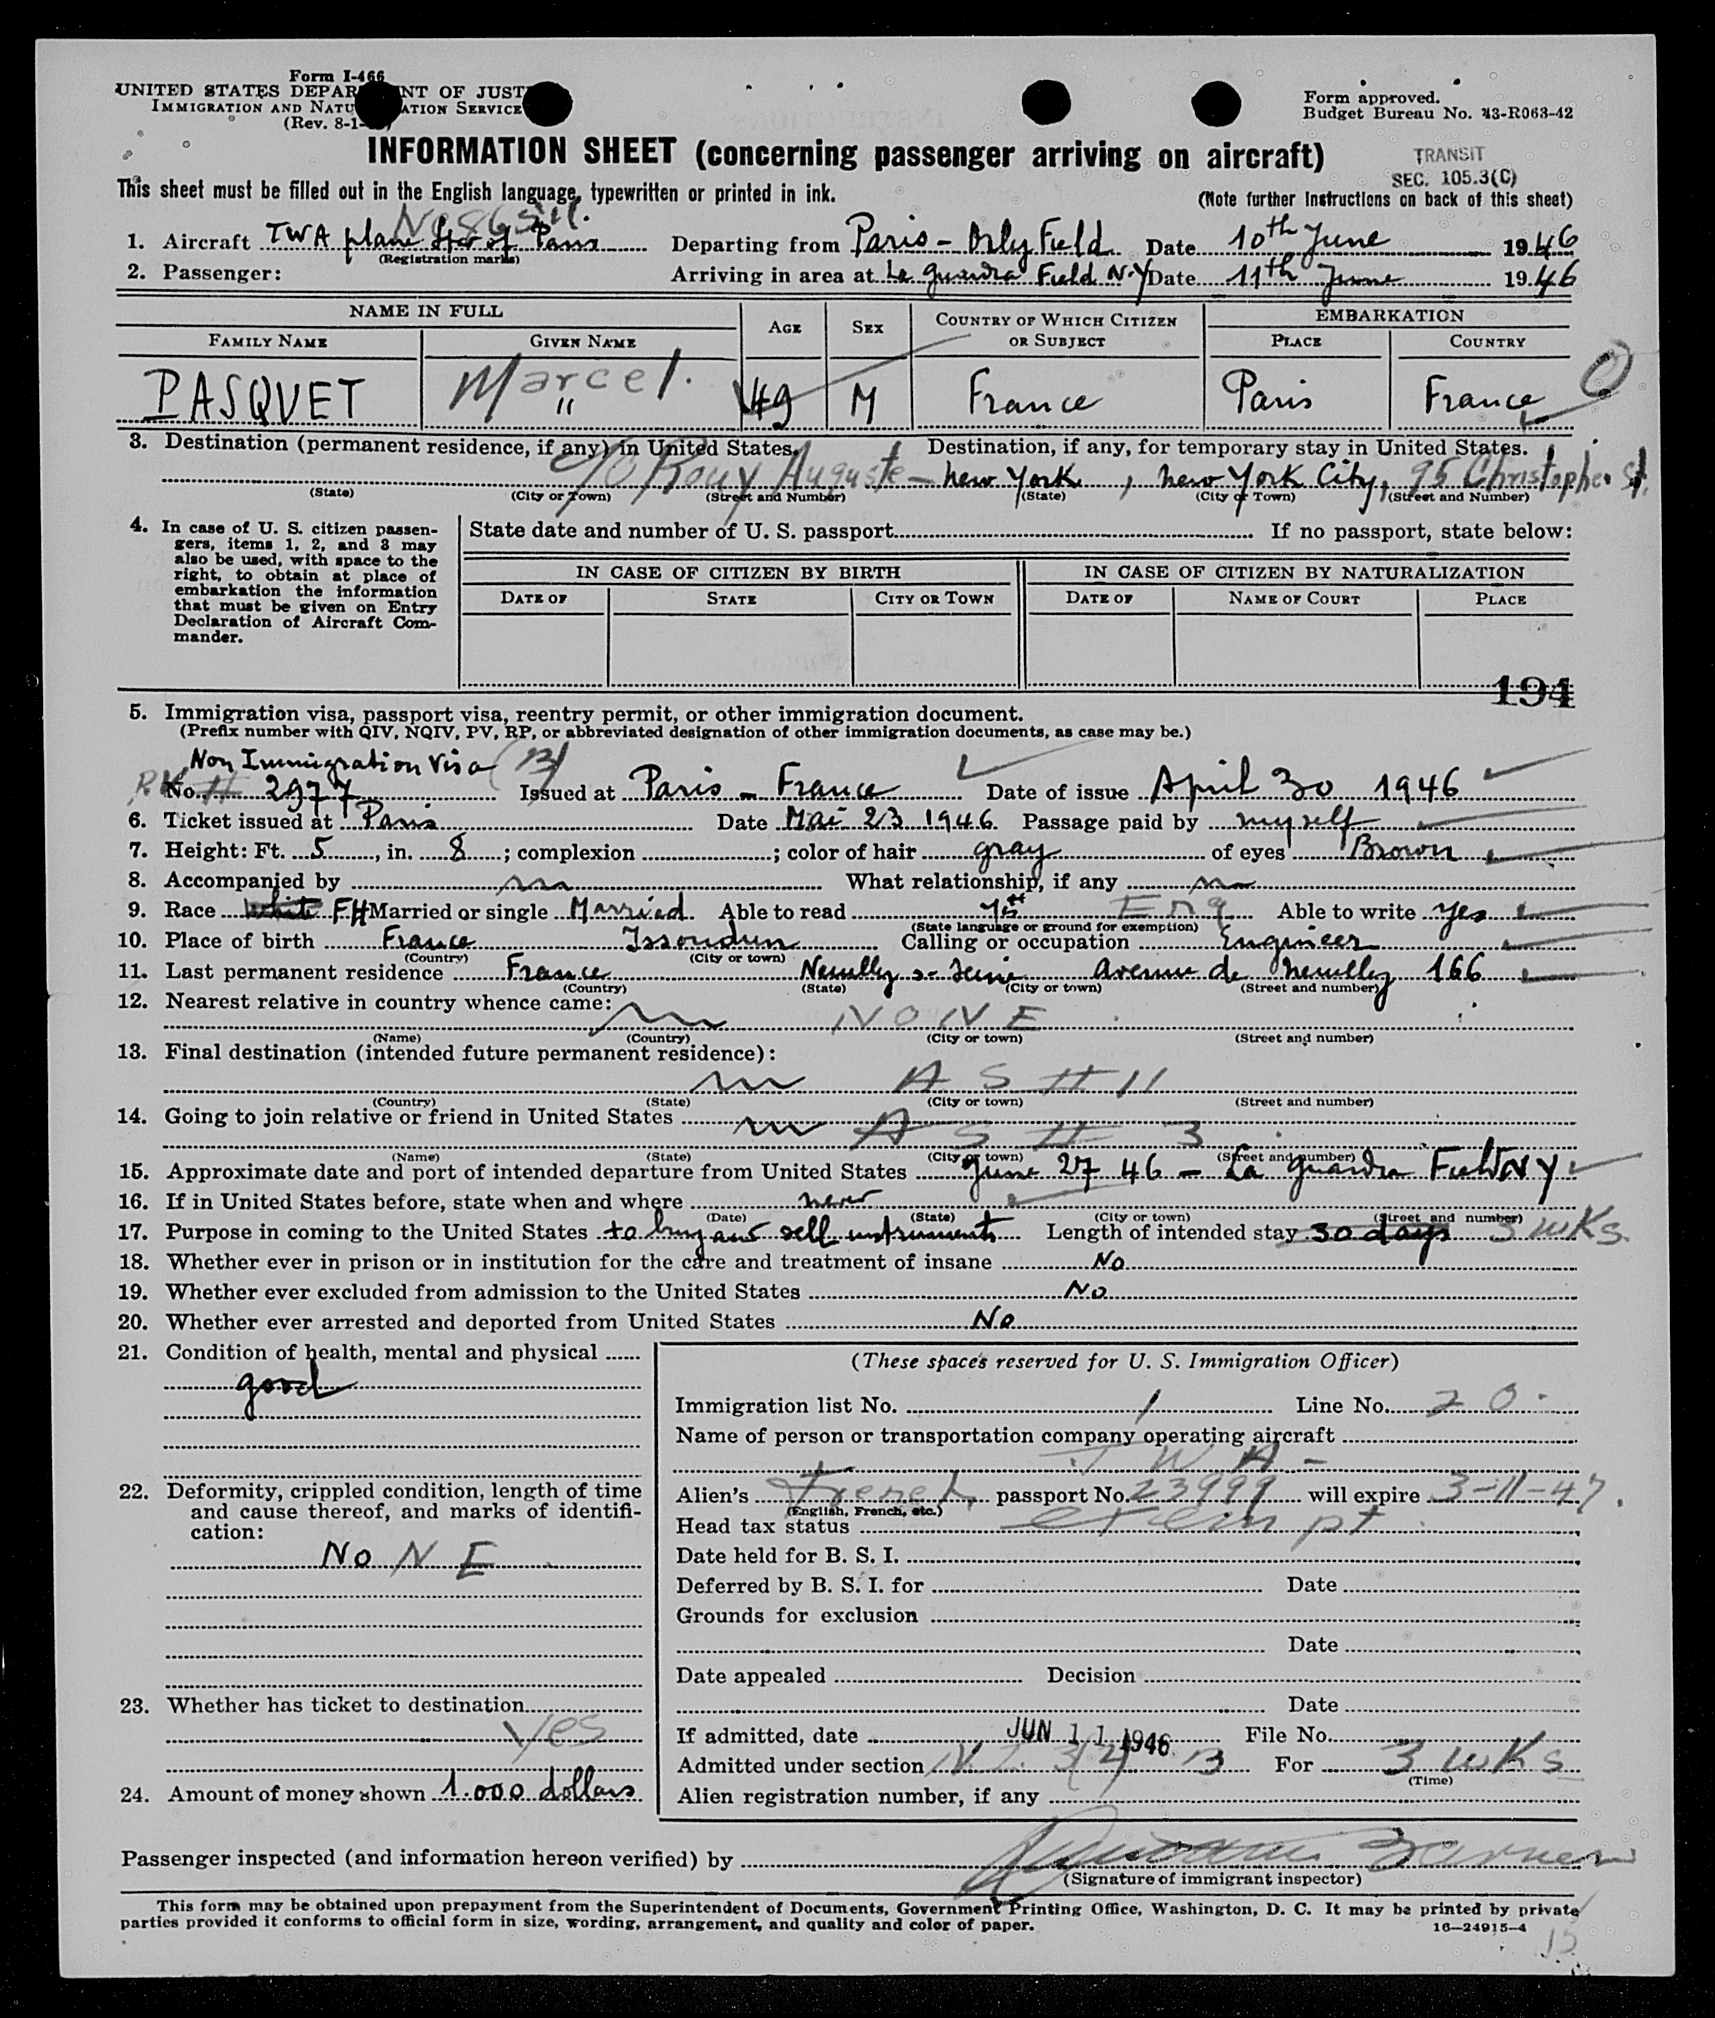 Form I-466
UNITED STATES DEPAR NT OF JUST
IMMIGRATION AND NATU ATION SERVICE
(Rev. 8-1-
Form approved.
Budget Bureau No. 43-R063-42
INFORMATION SHEET (concerning passenger arriving on aircraft)
TRANSIT
SEC. 105.3(C)
This sheet must be filled out in the English language, typewritten or printed in ink.
(Note further instructions on back of this sheet)
1. Aircraft TWA plane Star of Paris Departing from Paris - Orly Field Date 10th June 1946
(Registration marks)
2. Passenger: Arriving in area at La Guardia Field N.Y Date 11th June 1946
NAME IN FULL AGE SEX COUNTRY OF WHICH CITIZEN OR SUBJECT EMBARKATION
FAMILY NAME GIVEN NAME PLACE COUNTRY
PASQUET Marcel. 49 M France Paris France
3. Destination (permanent residence, if any) in United States. Destination, if any, for temporary stay in United States.
c/o Rouy Auguste - New York, New York City, 95 Christopher St.
(State) (City or Town) (Street and Number) (State) (City or Town) (Street and Number)
4. In case of U. S. citizen passen-
gers, items 1, 2, and 3 may
also be used, with space to the
right, to obtain at place of
embarkation the information
that must be given on Entry
Declaration of Aircraft Com-
mander.
State date and number of U. S. passport If no passport, state below:
IN CASE OF CITIZEN BY BIRTH IN CASE OF CITIZEN BY NATURALIZATION
DATE OF STATE CITY OR TOWN DATE OF NAME OF COURT PLACE
194
5. Immigration visa, passport visa, reentry permit, or other immigration document.
(Prefix number with QIV, NQIV, PV, RP, or abbreviated designation of other immigration documents, as case may be.)
Non Immigration Visa
No. 2977 Issued at Paris - France Date of issue April 30 1946
6. Ticket issued at Paris Date Mai 23 1946 Passage paid by myself
7. Height: Ft. 5, in. 8; complexion ; color of hair gray of eyes Brown
8. Accompanied by What relationship, if any
9. Race White FH Married or single Married Able to read Yes Eng Able to write yes
(State language or ground for exemption)
10. Place of birth France Issoudun Calling or occupation Engineer
(Country) (City or town)
11. Last permanent residence France Neuilly s- Seine avenue de Neuilly 166
(Country) (State) (City or town) (Street and number)
12. Nearest relative in country whence came:
NONE
(Name) (Country) (City or town) (Street and number)
13. Final destination (intended future permanent residence):
AS # 11
(Country) (State) (City or town) (Street and number)
14. Going to join relative or friend in United States
AS # 3
(Name) (State) (City or town) (Street and number)
15. Approximate date and port of intended departure from United States June 27 46 - La Guardia Field NY
16. If in United States before, state when and where never
(Date) (State) (City or town) (Street and number)
17. Purpose in coming to the United States to buy and sell instruments Length of intended stay 30 days 3 wks.
18. Whether ever in prison or in institution for the care and treatment of insane No
19. Whether ever excluded from admission to the United States No
20. Whether ever arrested and deported from United States No
21. Condition of health, mental and physical
good
22. Deformity, crippled condition, length of time
and cause thereof, and marks of identifi-
cation:
NoNE
23. Whether has ticket to destination
Yes
24. Amount of money shown 1.000 dollars
(These spaces reserved for U. S. Immigration Officer)
Immigration list No. 1 Line No. 20
Name of person or transportation company operating aircraft
TWA -
Alien's French passport No. 23999 will expire 3-11-47.
(English, French, etc.)
Head tax status exempt
Date held for B. S. I.
Deferred by B. S. I. for Date
Grounds for exclusion
Date
Date appealed Decision
Date
If admitted, date JUN 11 1946 File No.
Admitted under section 3(2) B For 3 wks
(Time)
Alien registration number, if any
Passenger inspected (and information hereon verified) by
(Signature of immigrant inspector)
This form may be obtained upon prepayment from the Superintendent of Documents, Government Printing Office, Washington, D. C. It may be printed by private
parties provided it conforms to official form in size, wording, arrangement, and quality and color of paper.
16—24915-4